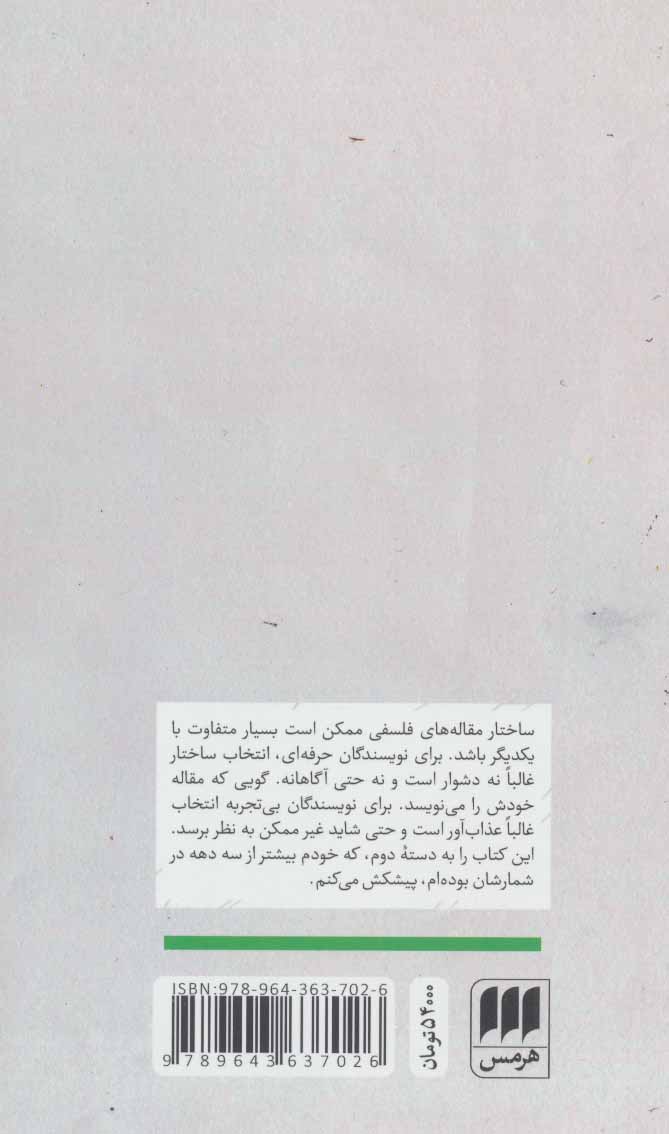 ساختار مقاله‌های فلسفی ممکن است بسیار متفاوت با
یکدیگر باشد. برای نویسندگان حرفه‌ای، انتخاب ساختار
غالباً نه دشوار است و نه حتی آگاهانه. گویی که مقاله
خودش را می‌نویسد. برای نویسندگان بی‌تجربه انتخاب
غالباً عذاب‌آور است و حتی شاید غیر ممکن به نظر برسد.
این کتاب را به دستهٔ دوم، که خودم بیشتر از سه دهه در
شمارشان بوده‌ام، پیشکش می‌کنم.
ISBN:978-964-363-702-6
9 789643 637026
۵۴۰۰۰ تومان
هرمس